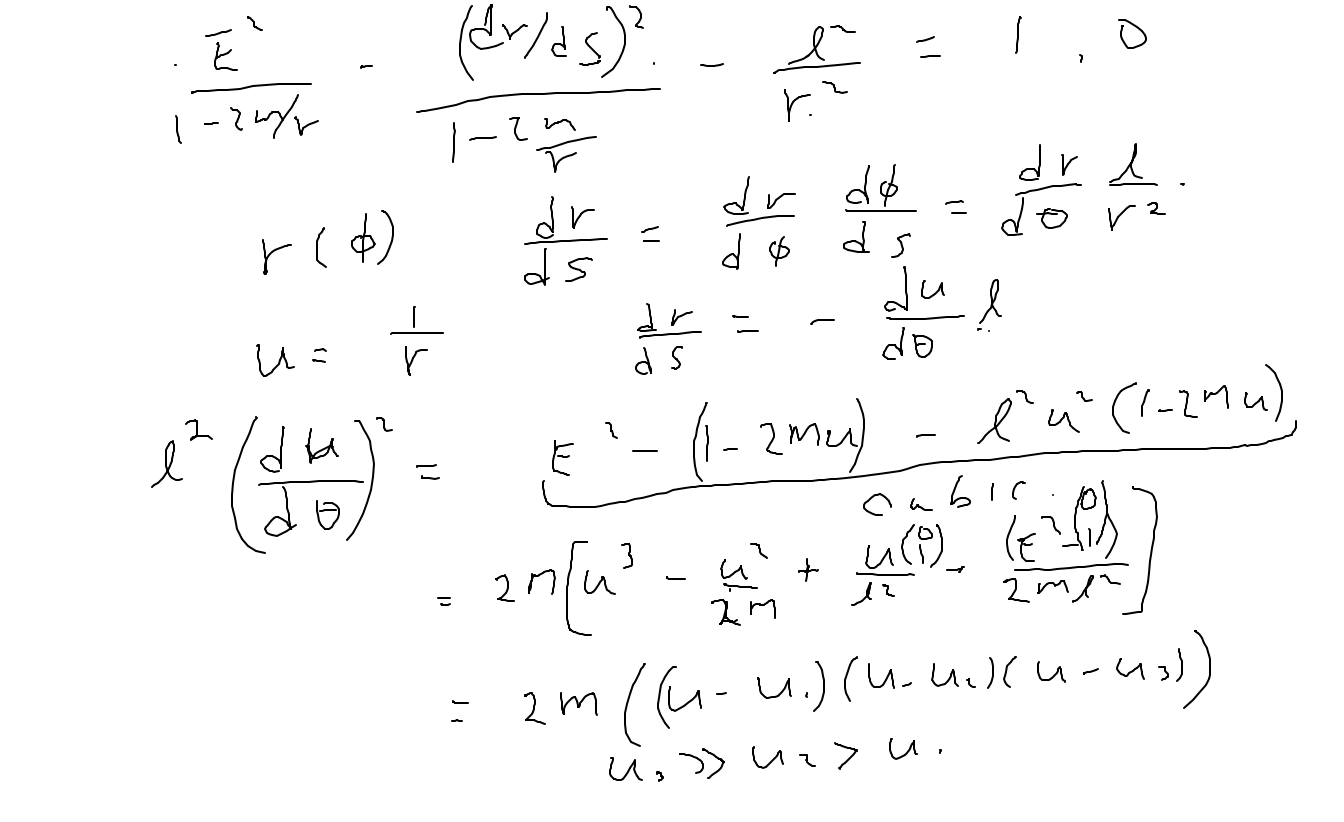 E² / (1 - 2m/r) - (dr/ds)² / (1 - 2m/r) - l² / r² = 1, 0
r(ϕ) dr/ds = dr/dϕ dϕ/ds = dr/dθ l/r²
u = 1/r dr/ds = - du/dθ l
l² (du/dθ)² = E² - (1 - 2mu) - l² u² (1 - 2mu)
cubic
= 2m [u³ - u²/2m + u/l² (0 1) + (E² - (0 1)) / 2ml²]
= 2m ((u - u₁)(u - u₂)(u - u₃))
u₃ >> u₂ > u₁